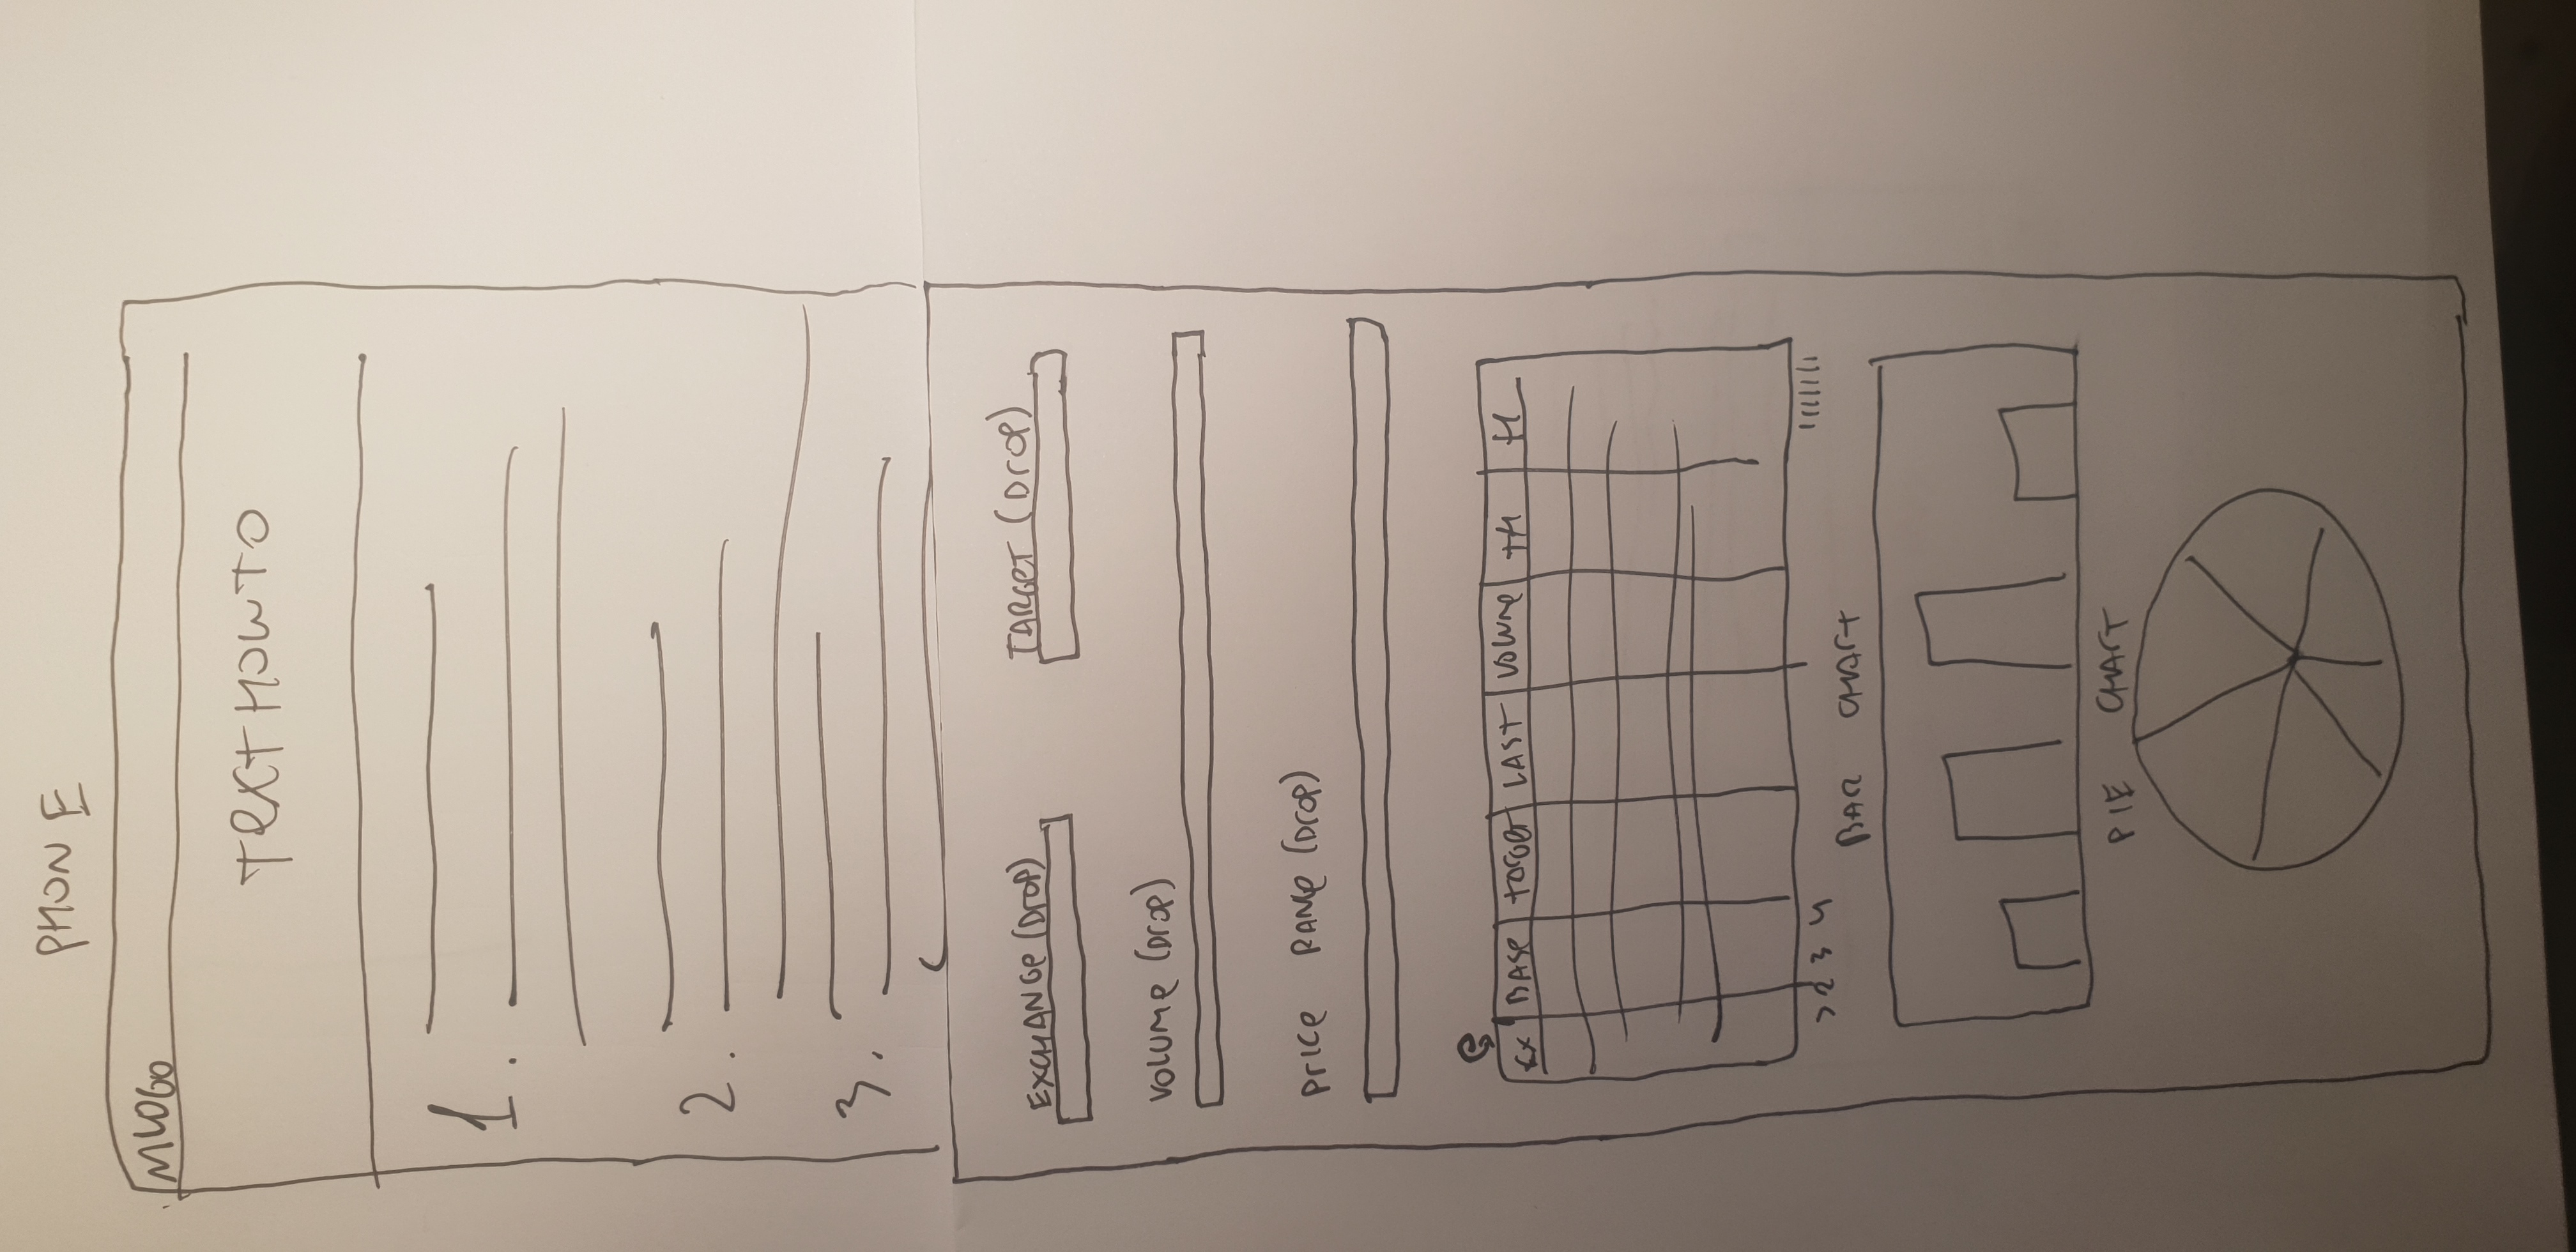 PHONE
MLOGO
TEXT HOW TO
1.
2.
3.
EXCHANGE (DROP)
TARGET (DROP)
VOLUME (DROP)
PRICE RANGE (DROP)
EX BASE TARGET LAST VOLUME
2 3 4
BAR CHART
PIE CHART